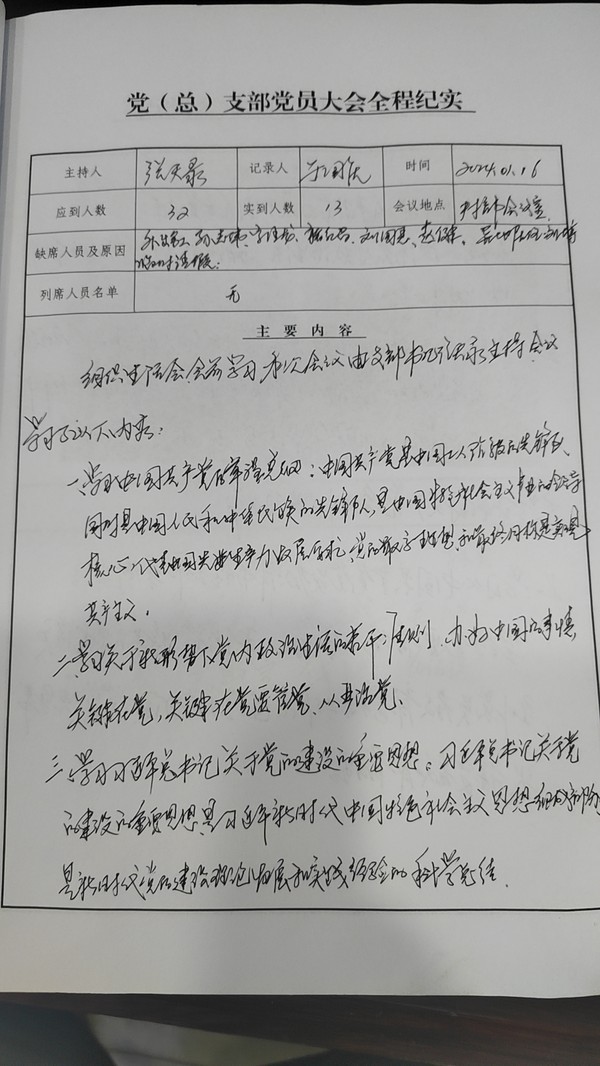 党（总）支部党员大会全程纪实
主持人 记录人 时间 2024.01.16
应到人数 32 实到人数 13 会议地点 村部会议室
缺席人员及原因
临时请假
列席人员名单 无
主要内容
组织生活会会前学习,本次会议由支部书记 主持,会议
学习了以下内容：
一、学习中国共产党 章程总纲：中国共产党是中国工人阶级的先锋队、
同时是中国人民和中华民族的先锋队,是中国特色社会主义事业的领导
核心,代表中国先进生产力 党的最高理想和最终目标是实现
共产主义。
二、学习关于新形势下党内政治生活的若干准则,办好中国的事情,
关键在党,关键在党要管党、从严治党。
三、学习习近平总书记关于党的建设的重要思想。习近平总书记关于党
的建设的重要思想是习近平新时代中国特色社会主义思想
是新时代党的建设理论发展和实践经验的科学总结.